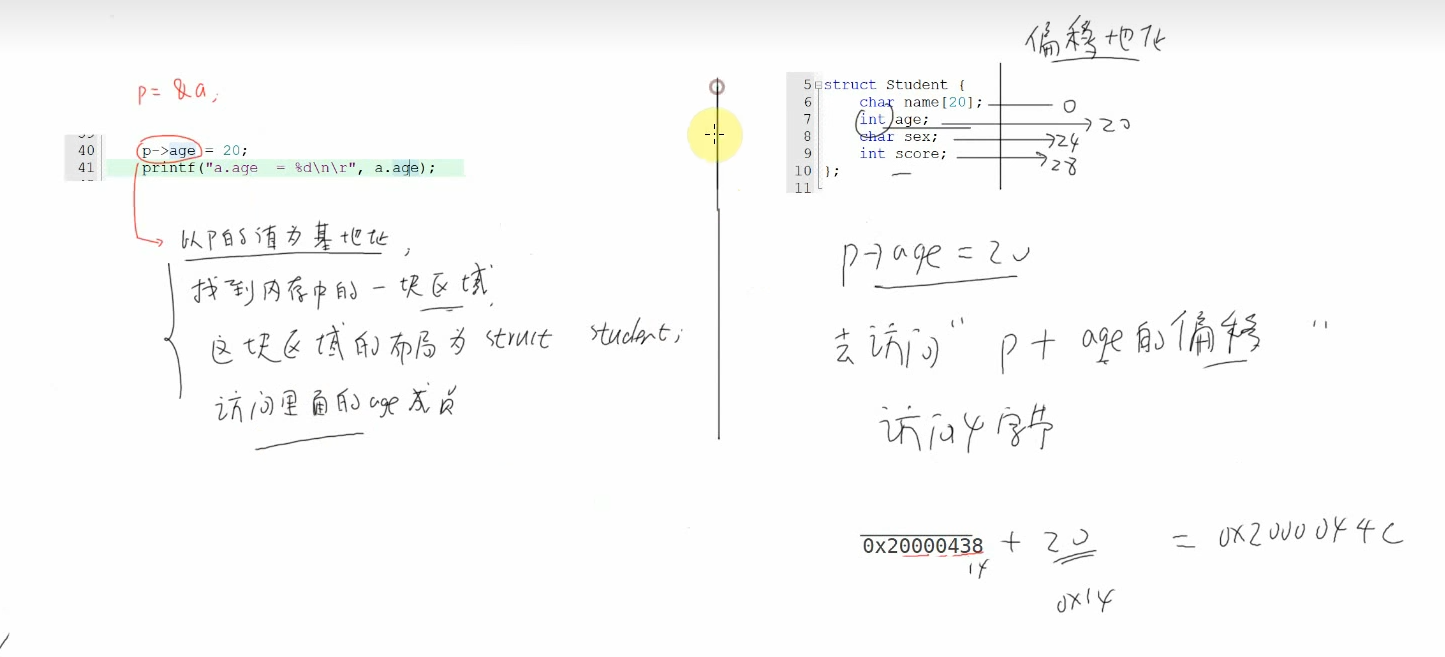 p= &a;
39
40 p->age = 20;
41 printf("a.age  = %d\n\r", a.age);
以P的值为基地址,
找到内存中的一块区域,
这块区域的布局为 struct student;
访问里面的age成员
偏移地址
5 struct Student {
6 char name[20]; 0
7 int age; 20
8 char sex; 24
9 int score; 28
10 };
11
p->age = 20
去访问“ p + age的偏移 ”
访问4字节
0x20000438 + 20 = 0x2000044C
14
0x14